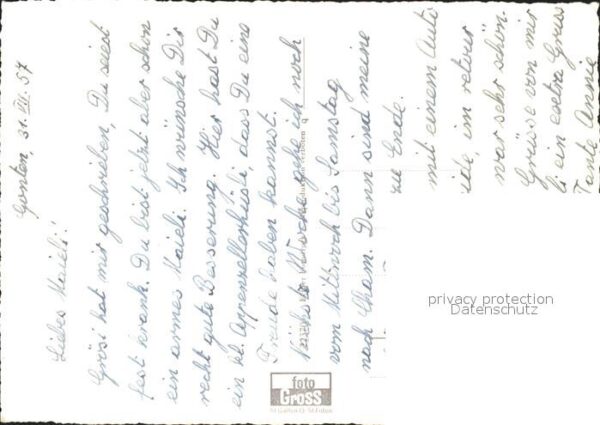 Gonten, 31. VII. 57
Liebes Maieli!
Grösi hat mir geschrieben, Du seiest
fest krank. Du bist jetzt aber schon
ein armes Maieli. Ich wünsche Dir
recht gute Besserung. Hier hast Du
ein kl. Appenzellerhüsli, dass Du eine
Freude haben kannst.
Nächste Woche gehe ich noch
vom Mittwoch bis Samstag
nach Cham. Dann sind meine
zu Ende.
mit einem Auto
im retour
war sehr schön.
Grüsse von mir
ein extra Gruss
Tante Annie
privacy protection
Datenschutz
foto
GROSS
St. Gallen